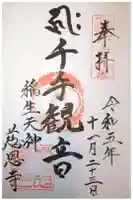 奉拝
令和五年
十一月二十三日
千手観音
稲生天神
慈恩寺